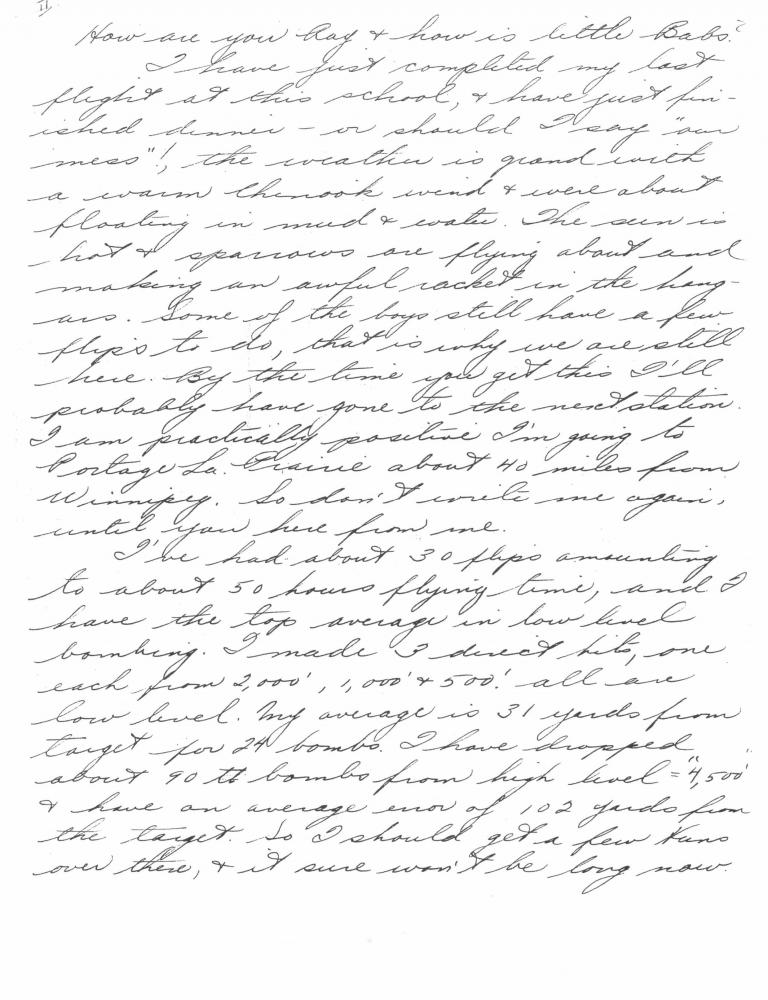 II
How are you Ray & how is little Babs?
I have just completed my last
flight at this school, & have just fin-
ished dinner - or should I say "our
mess"!, the weather is grand with
a warm Chenook wind & were about
floating in mud & water. The sun is
hot & sparrows are flying about and
making an awful racket in the hang-
ars. Some of the boys still have a few
flips to do, that is why we are still
here. By the time you get this I'll
probably have gone to the next station.
I am practically positive I'm going to
Portage La. Prairie about 40 miles from
Winnipeg. So don't write me again,
until you here from me.
I've had about 30 flips amounting
to about 50 hours flying time, and I
have the top average in low level
bombing. I made 3 direct hits, one
each from 2,000', 1,000' & 500'. all are
low level. My average is 31 yards from
target for 24 bombs. I have dropped
about 90 bombs from high level = "4,500'"
& have an average error of 102 yards from
the target. So I should get a few Huns
over there, & it sure won't be long now.